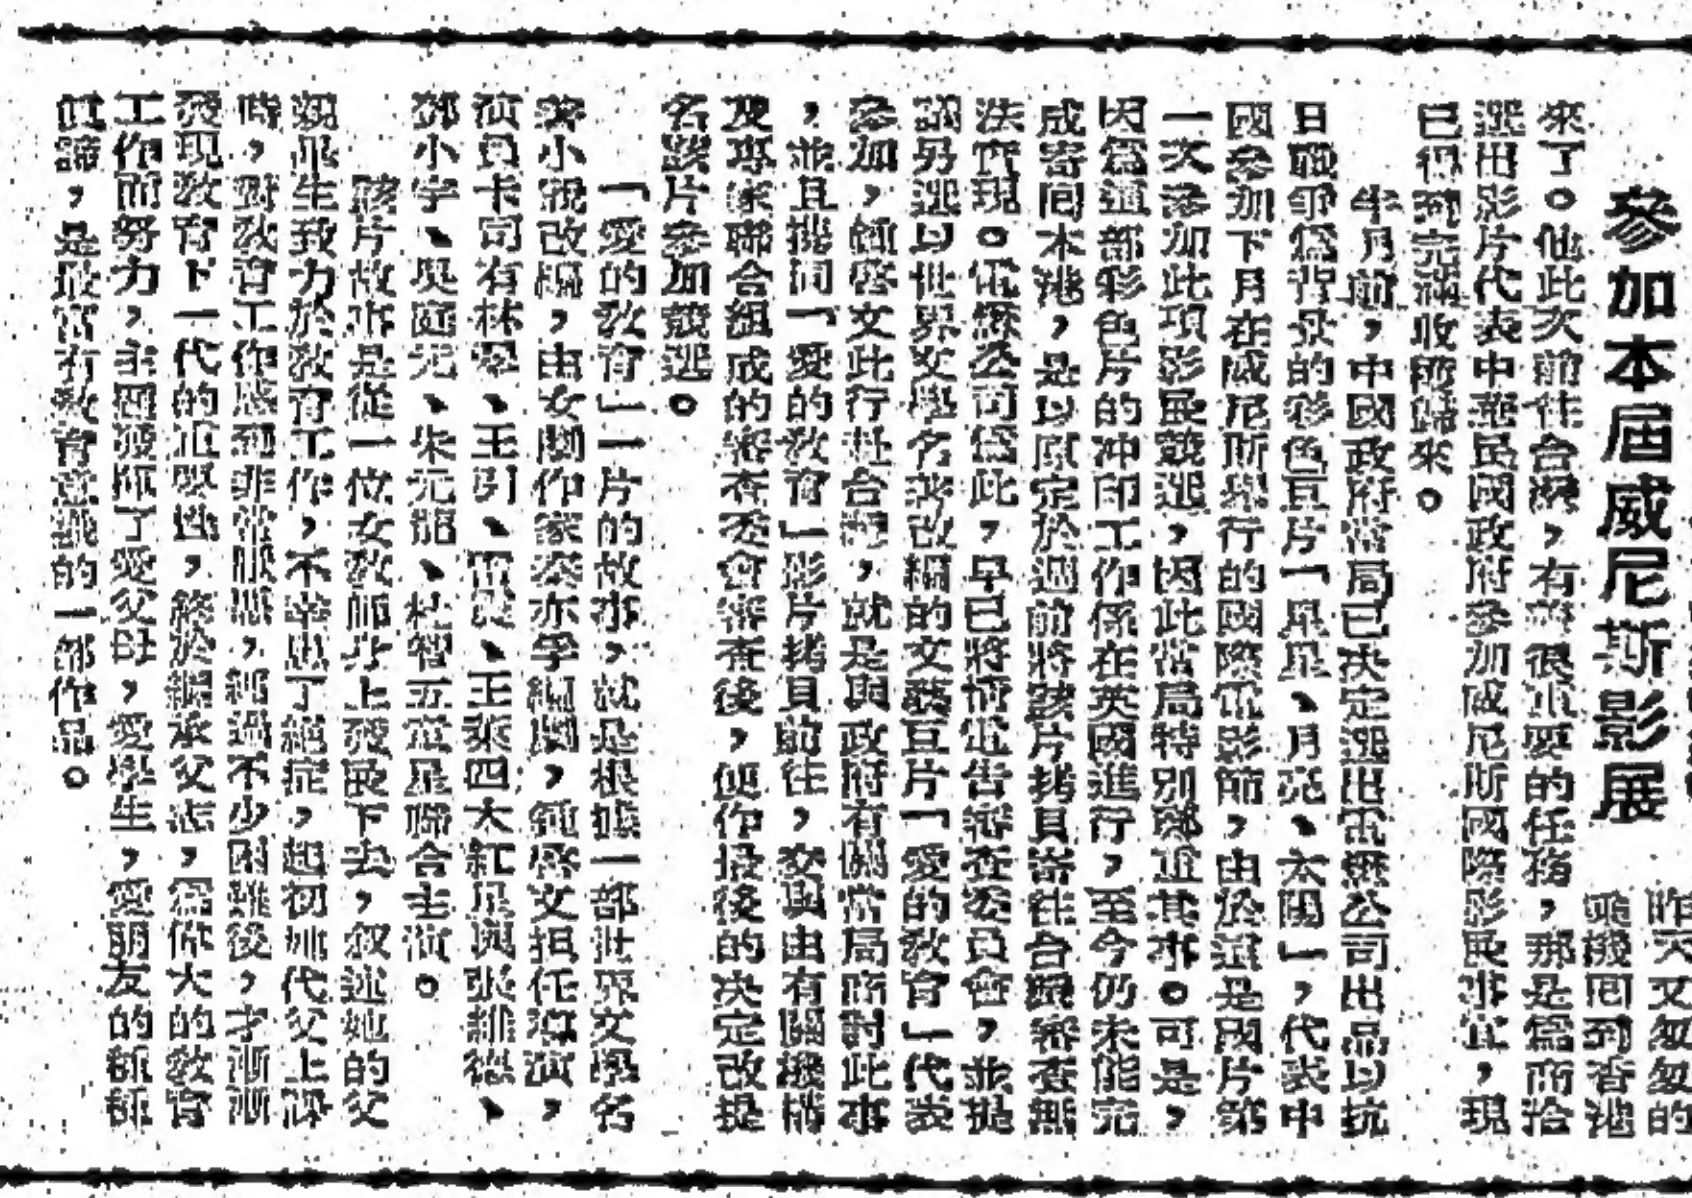 參加本屆威尼斯影展
昨天又匆匆的
乘機囘到香港
來了。他此次前往台灣,有着很重要的任務,那是爲商洽
選出影片代表中華民國政府參加威尼斯國際影展事宜,現
已得到完滿收穫歸來。
半月前,中國政府當局已决定選出電懋公司出品以抗
日戰爭爲背景的彩色巨片「星星、月亮、太陽」,代表中
國參加下月在威尼斯舉行的國際電影節,由於這是國片第
一次參加此項影展競選,因此當局特別鄭重其事。可是,
因爲這部彩色片的冲印工作係在英國進行,至今仍未能完
成寄囘本港,是以原定於週前將該片拷貝寄往台灣審查無
法實現。電懋公司爲此,早已將情電告審查委員會,並提
議另選以世界文學名著改編的文藝巨片「愛的敎育」代表
參加,鍾啓文此行赴台灣,就是與政府有關當局商討此事
,並且攜同「愛的敎育」影片拷貝前往,交與由有關機構
及專家聯合組成的審查委會審查後,便作最後的决定改提
名該片參加競選。
「愛的敎育」一片的故事,就是根據一部世界文學名
著小說改編,由女劇作家秦亦孚編劇,鍾啓文担任導演,
演員卡司有林翠、王引、雷震、王萊四大紅星與張維德、
鄧小宇、吳庭元、朱元龍、杜智五童星聯合主演。
該片故事是從一位女敎師身上發展下去,叙述她的父
親畢生致力於敎育工作,不幸患了絕症,起初她代父上課
時,對敎育工作感到非常厭惡,經過不少困難後,才漸漸
發現敎育下一代的重要性,終於繼承父志,爲偉大的敎育
工作而努力,主題發揮了愛父母,愛學生,愛朋友的種種
眞諦,是最富有敎育意義的一部作品。